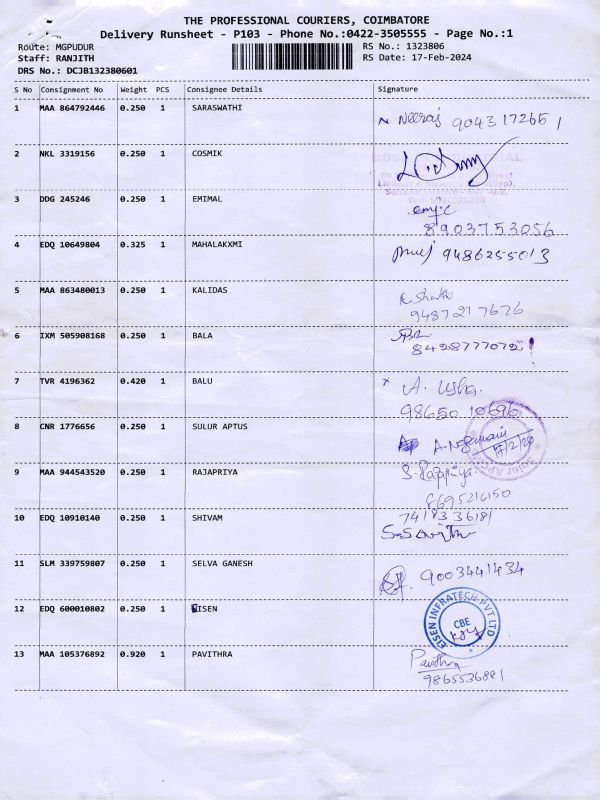 THE PROFESSIONAL COURIERS, COIMBATORE
Delivery Runsheet - P103 - Phone No.:0422-3505555 - Page No.:1
Route: MGPUDUR
RS No.: 1323806
Staff: RANJITH
RS Date: 17-Feb-2024
DRS No.: DCJB132380601
S No Consignment No Weight PCS Consignee Details Signature
1 MAA 864792446 0.250 1 SARASWATHI
Neeraj 9043172651
2 NKL 3319156 0.250 1 COSMIK
3 DDG 245246 0.250 1 EMIMAL
8903753056
4 EDQ 10649804 0.325 1 MAHALAKXMI
9486255013
5 MAA 863480013 0.250 1 KALIDAS
9487217676
6 IXM 505908168 0.250 1 BALA
8428777072
7 TVR 4196362 0.420 1 BALU
A. Usha.
98650 10696
8 CNR 1776656 0.250 1 SULUR APTUS
17/2/24
9 MAA 944543520 0.250 1 RAJAPRIYA
S. Rajapriya
8695216150
10 EDQ 10910140 0.250 1 SHIVAM
7418336181
11 SLM 339759807 0.250 1 SELVA GANESH
9003441434
12 EDQ 600010802 0.250 1 EISEN
EISEN INFRATECH PVT LTD
CBE
13 MAA 105376892 0.920 1 PAVITHRA
Pavithra
9865536881